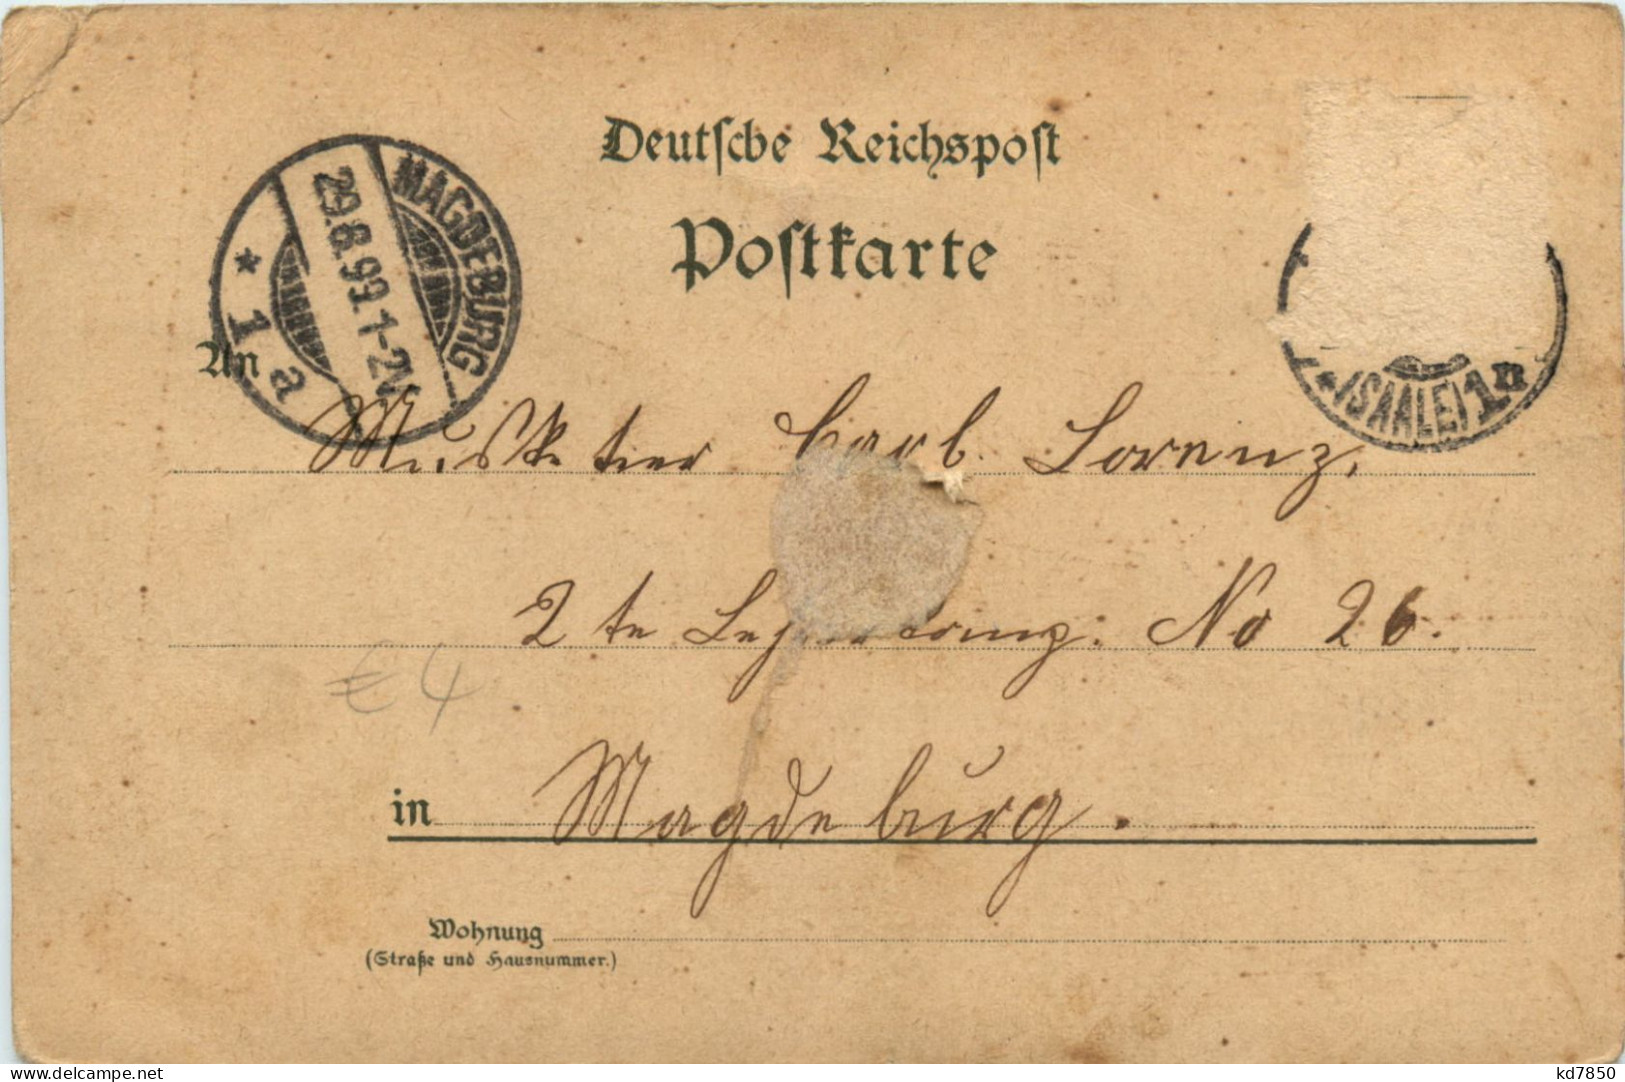 Deutsche Reichspost
Postkarte
MAGDEBURG
29.8.99.1-2N
* 1 a *
* (SAALE) 1 n
An
Musketier Carl Lorenz.
2te No 26.
€4
in Magdeburg.
Wohnung
(Straße und Hausnummer.)
www.delcampe.net
kd7850